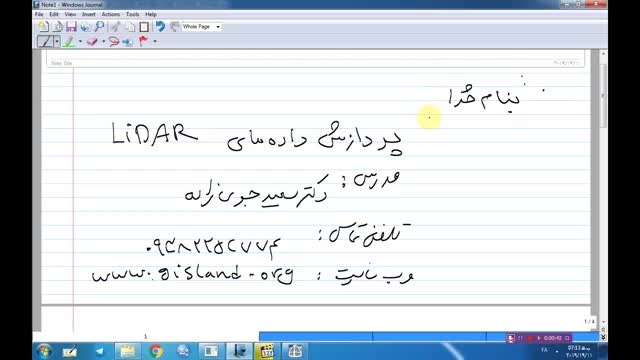 Note1 - Windows Journal
File Edit View Insert Actions Tools Help
Whole Page
Note Title
۲۰۱۹/۱۹/۱۱
بنام خدا
پردازش داده های LiDAR
مدرس : دکتر سعید جوی زاده
تلفن تماس :
وب سایت : www.gisland.org
1 / 4
1
0:00:42
FA
07:13 ب.ظ